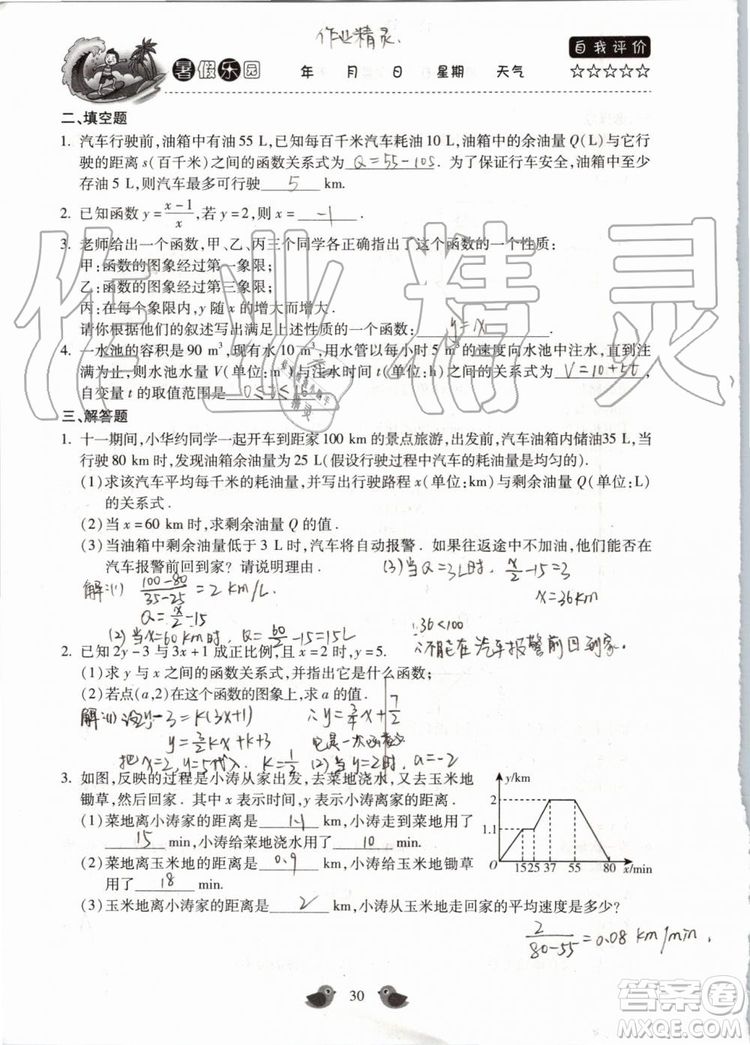 作业精灵.
暑假乐园 年 月 日 星期 天气
自我评价
☆☆☆☆☆
二、填空题
1. 汽车行驶前,油箱中有油 55 L,已知每百千米汽车耗油 10 L,油箱中的余油量 Q(L)与它行
驶的距离 s(百千米)之间的函数关系式为 Q=55-10s .为了保证行车安全,油箱中至少
存油 5 L,则汽车最多可行驶 5 km.
2. 已知函数 y=(x-1)/x,若 y=2,则 x= -1 .
3. 老师给出一个函数,甲、乙、丙三个同学各正确指出了这个函数的一个性质:
甲:函数的图象经过第一象限;
乙:函数的图象经过第三象限;
丙:在每个象限内,y 随 x 的增大而增大.
请你根据他们的叙述写出满足上述性质的一个函数: y=x
4. 一水池的容积是 90 m³,现蓄水 10 m³,用水管以每小时 5 m³的速度向水池中注水,直到注
满为止,则水池水量 V(单位:m³)与注水时间 t(单位:h)之间的关系式为 V=10+5t ,
自变量 t 的取值范围是 0≤t≤16
三、解答题
1. 十一期间,小华约同学一起开车到距家 100 km 的景点旅游,出发前,汽车油箱内储油35 L,当
行驶 80 km 时,发现油箱余油量为 25 L(假设行驶过程中汽车的耗油量是均匀的).
(1)求该汽车平均每千米的耗油量,并写出行驶路程 x(单位:km)与剩余油量 Q(单位:L)
的关系式.
(2)当 x=60 km 时,求剩余油量 Q 的值.
(3)当油箱中剩余油量低于 3 L 时,汽车将自动报警.如果往返途中不加油,他们能否在
汽车报警前回到家?请说明理由.
(3)当Q=3L时,x/2-15=3
x=36km
∵36<100
∴不能在汽车报警前回到家.
解:(1) (100-80)/(35-25)=2 km/L
Q=x/2-15
(2)当x=60km时,Q=60/2-15=15L
2. 已知 2y-3 与 3x+1 成正比例,且 x=2 时,y=5.
(1)求 y 与 x 之间的函数关系式,并指出它是什么函数;
(2)若点(a,2)在这个函数的图象上,求 a 的值.
解:(1)设2y-3=k(3x+1) ∴y=3/4x+7/2
y=3/2kx+k+3 它是一次函数
把x=2,y=5代入,k=1/2 (2)当y=2时,a=-2
3. 如图,反映的过程是小涛从家出发,去菜地浇水,又去玉米地
锄草,然后回家.其中 x 表示时间,y 表示小涛离家的距离.
(1)菜地离小涛家的距离是 1.1 km,小涛走到菜地用了
15 min,小涛给菜地浇水用了 10 min.
(2)菜地离玉米地的距离是 0.9 km,小涛给玉米地锄草
用了 18 min.
(3)玉米地离小涛家的距离是 2 km,小涛从玉米地走回家的平均速度是多少?
2/(80-55)=0.08 km/min.
y/km
2
1.1
O 15 25 37 55 80 x/min
30
作业精灵
答案圈
MXQE.COM